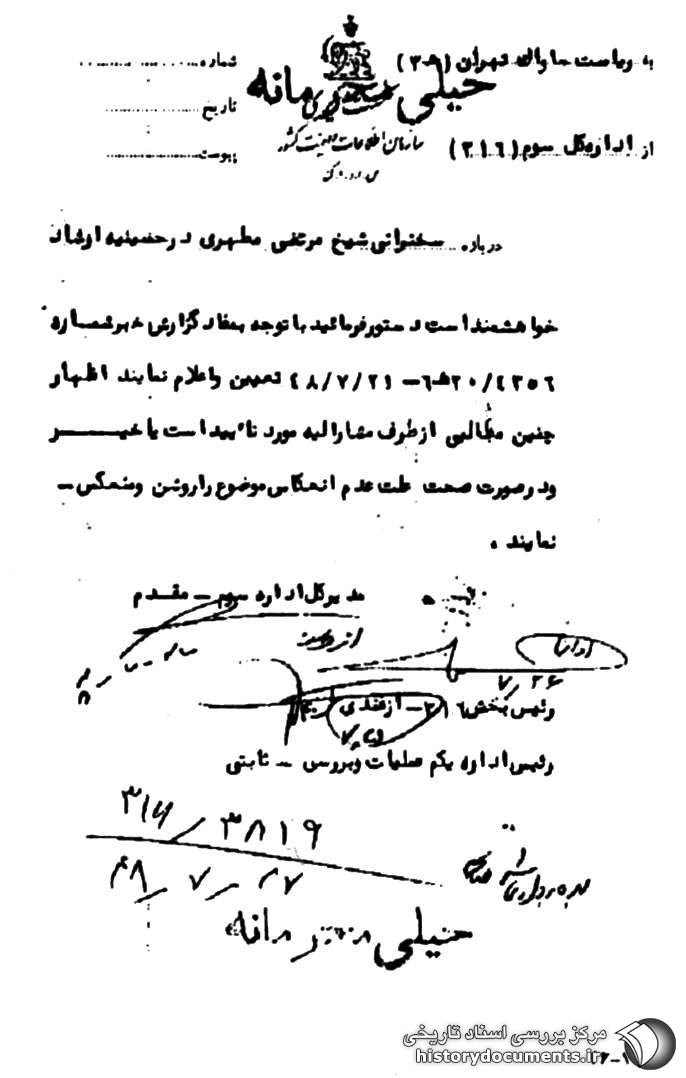 به ریاست ساواک تهران (۲۰ﻫ)
شماره
خیلی محرمانه
تاریخ
از اداره کل سوم (۳۱۶)
سازمان اطلاعات و امنیت کشور
پیوست
درباره سخنرانی شیخ مرتضی مطهری در حسینیه ارشاد
خواهشمند است دستور فرمائید با توجه بمفاد گزارش خبر شماره
۴۸/۷/۲۱ تعیین و اعلام نمایند اظهار
چنین مطالبی از طرف مشارالیه مورد تائید است یا خیر
و در صورت صحت علت عدم انعکاس موضوع را روشن و منعکس -
نمایند .
مدیر کل اداره سوم - مقدم
از طرف
۷/۲۶
رئیس بخش ۳۱۶ - ازغندی
رئیس اداره یکم عملیات و بررسی - ثابتی
۳۱۶/۳۸۱۹
۴۸/۷/۲۷
خیلی محرمانه
مرکز بررسی اسناد تاریخی
historydocuments.ir